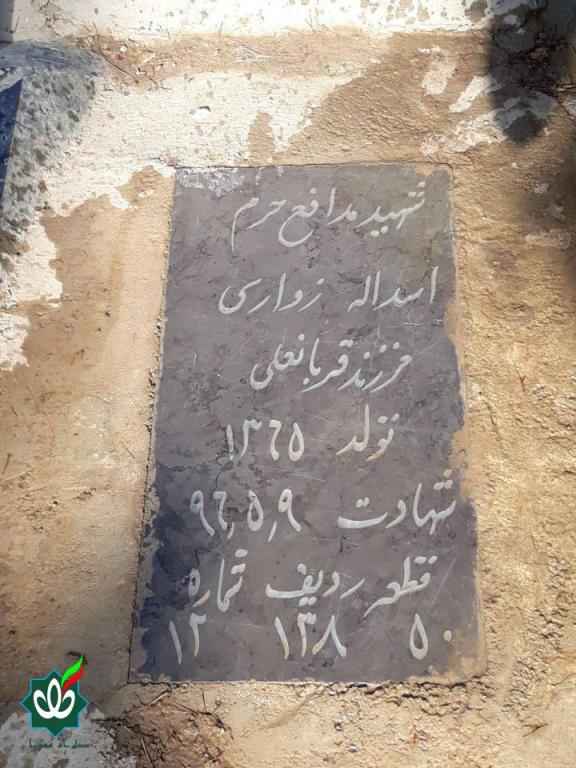 شهید مدافع حرم
اسداله زواری
فرزند قربانعلی
تولد ۱۳٦۵
شهادت ۹٦٫۵٫۹
قطعه ردیف شماره
۵۰ ۱۳۸ ۱۲